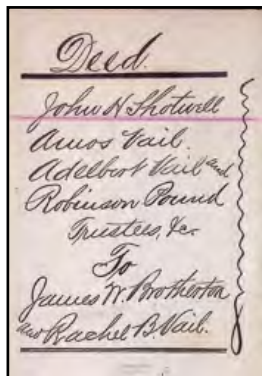 Deed.
John H Shotwell
Amos Vail.
Adelbert Vail and
Robinson Pound
Trustees, &c
To
James W. Brotherton
and Rachel B. Vail.